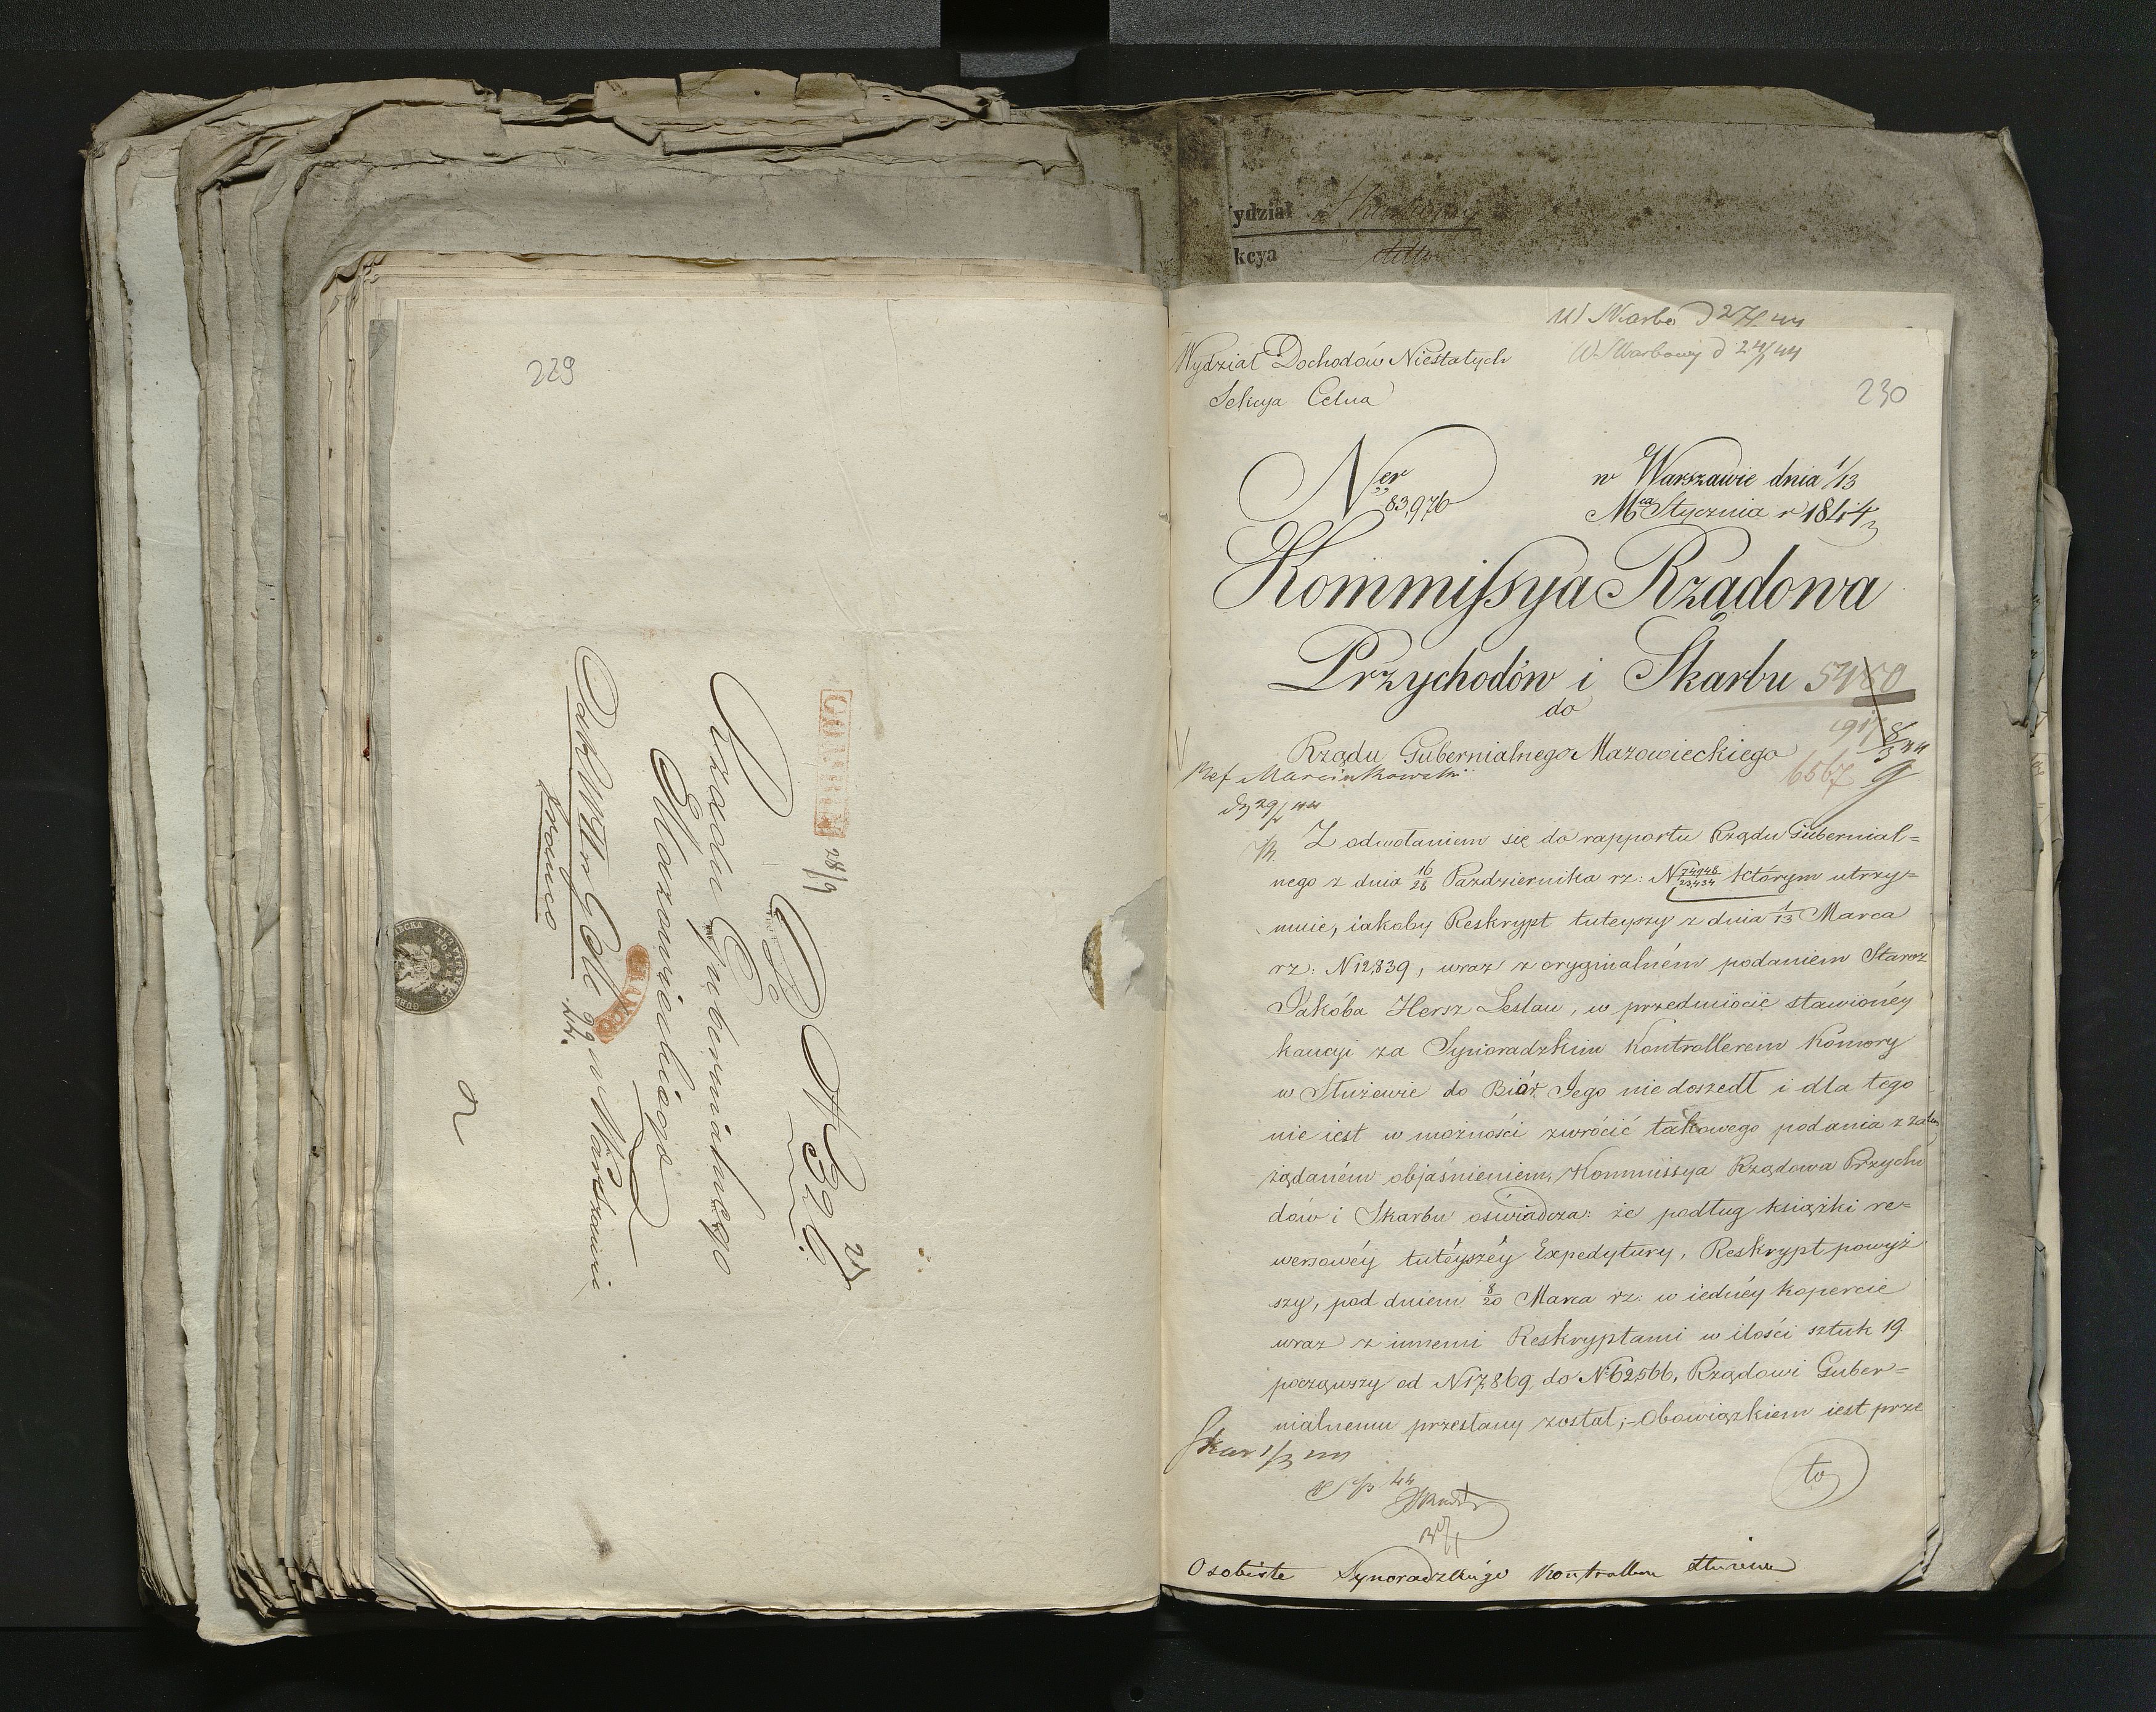 229
Do
N 326
Rządu Gubernialnego
Mazowieckiego
w Warszawie
franco
ydział Skarbowy
kcya
W Skarbo d 27/1 44
W Skarbowy d 24/1 44
230
Wydział Dochodów Niestałych
Sekcya Celna
Ner 83,976
w Warszawie dnia 1/13
Mca Stycznia r 1844
Kommissya Rządowa
Przychodów i Skarbu
do
Rządu Gubernialnego Mazowieckiego
6567
Ref Marcinkowski
Z odwołaniem się do rapportu Rządu Gubernial=
nego z dnia 16/28 Pazdziernika rz: N 74948/23434 którym utrzy=
muie, iakoby Reskrypt tuteyszy z dnia 1/13 Marca
rz: N 12,839, wraz z oryginalném podaniem Staroz
Jakóba Hersz Leslau, w przedmiocie stawionéy
kaucyi za Synoradzkim Kontrollerem Komory
w Służewie do Biór Jego nie doszedł i dla tego
nie iest w możności zwrócić takowego podania z
żądaném objaśnieniem, Kommissya Rządowa Przycho
dów i Skarbu oświadcza: że podług książki re=
wersowéy tutéyszéy Expedytury, Reskrypt powyż
szy, pod dniem 8/20 Marca rz: w iednéy kopercie
wraz z innemi Reskryptami w ilości sztuk 19
począwszy od N 17,869 do N 62566, Rządowi Guber=
nialnemu przesłany został;- Obowiązkiem iest prze
to
Osobiste Synoradzkiego Kontrollera